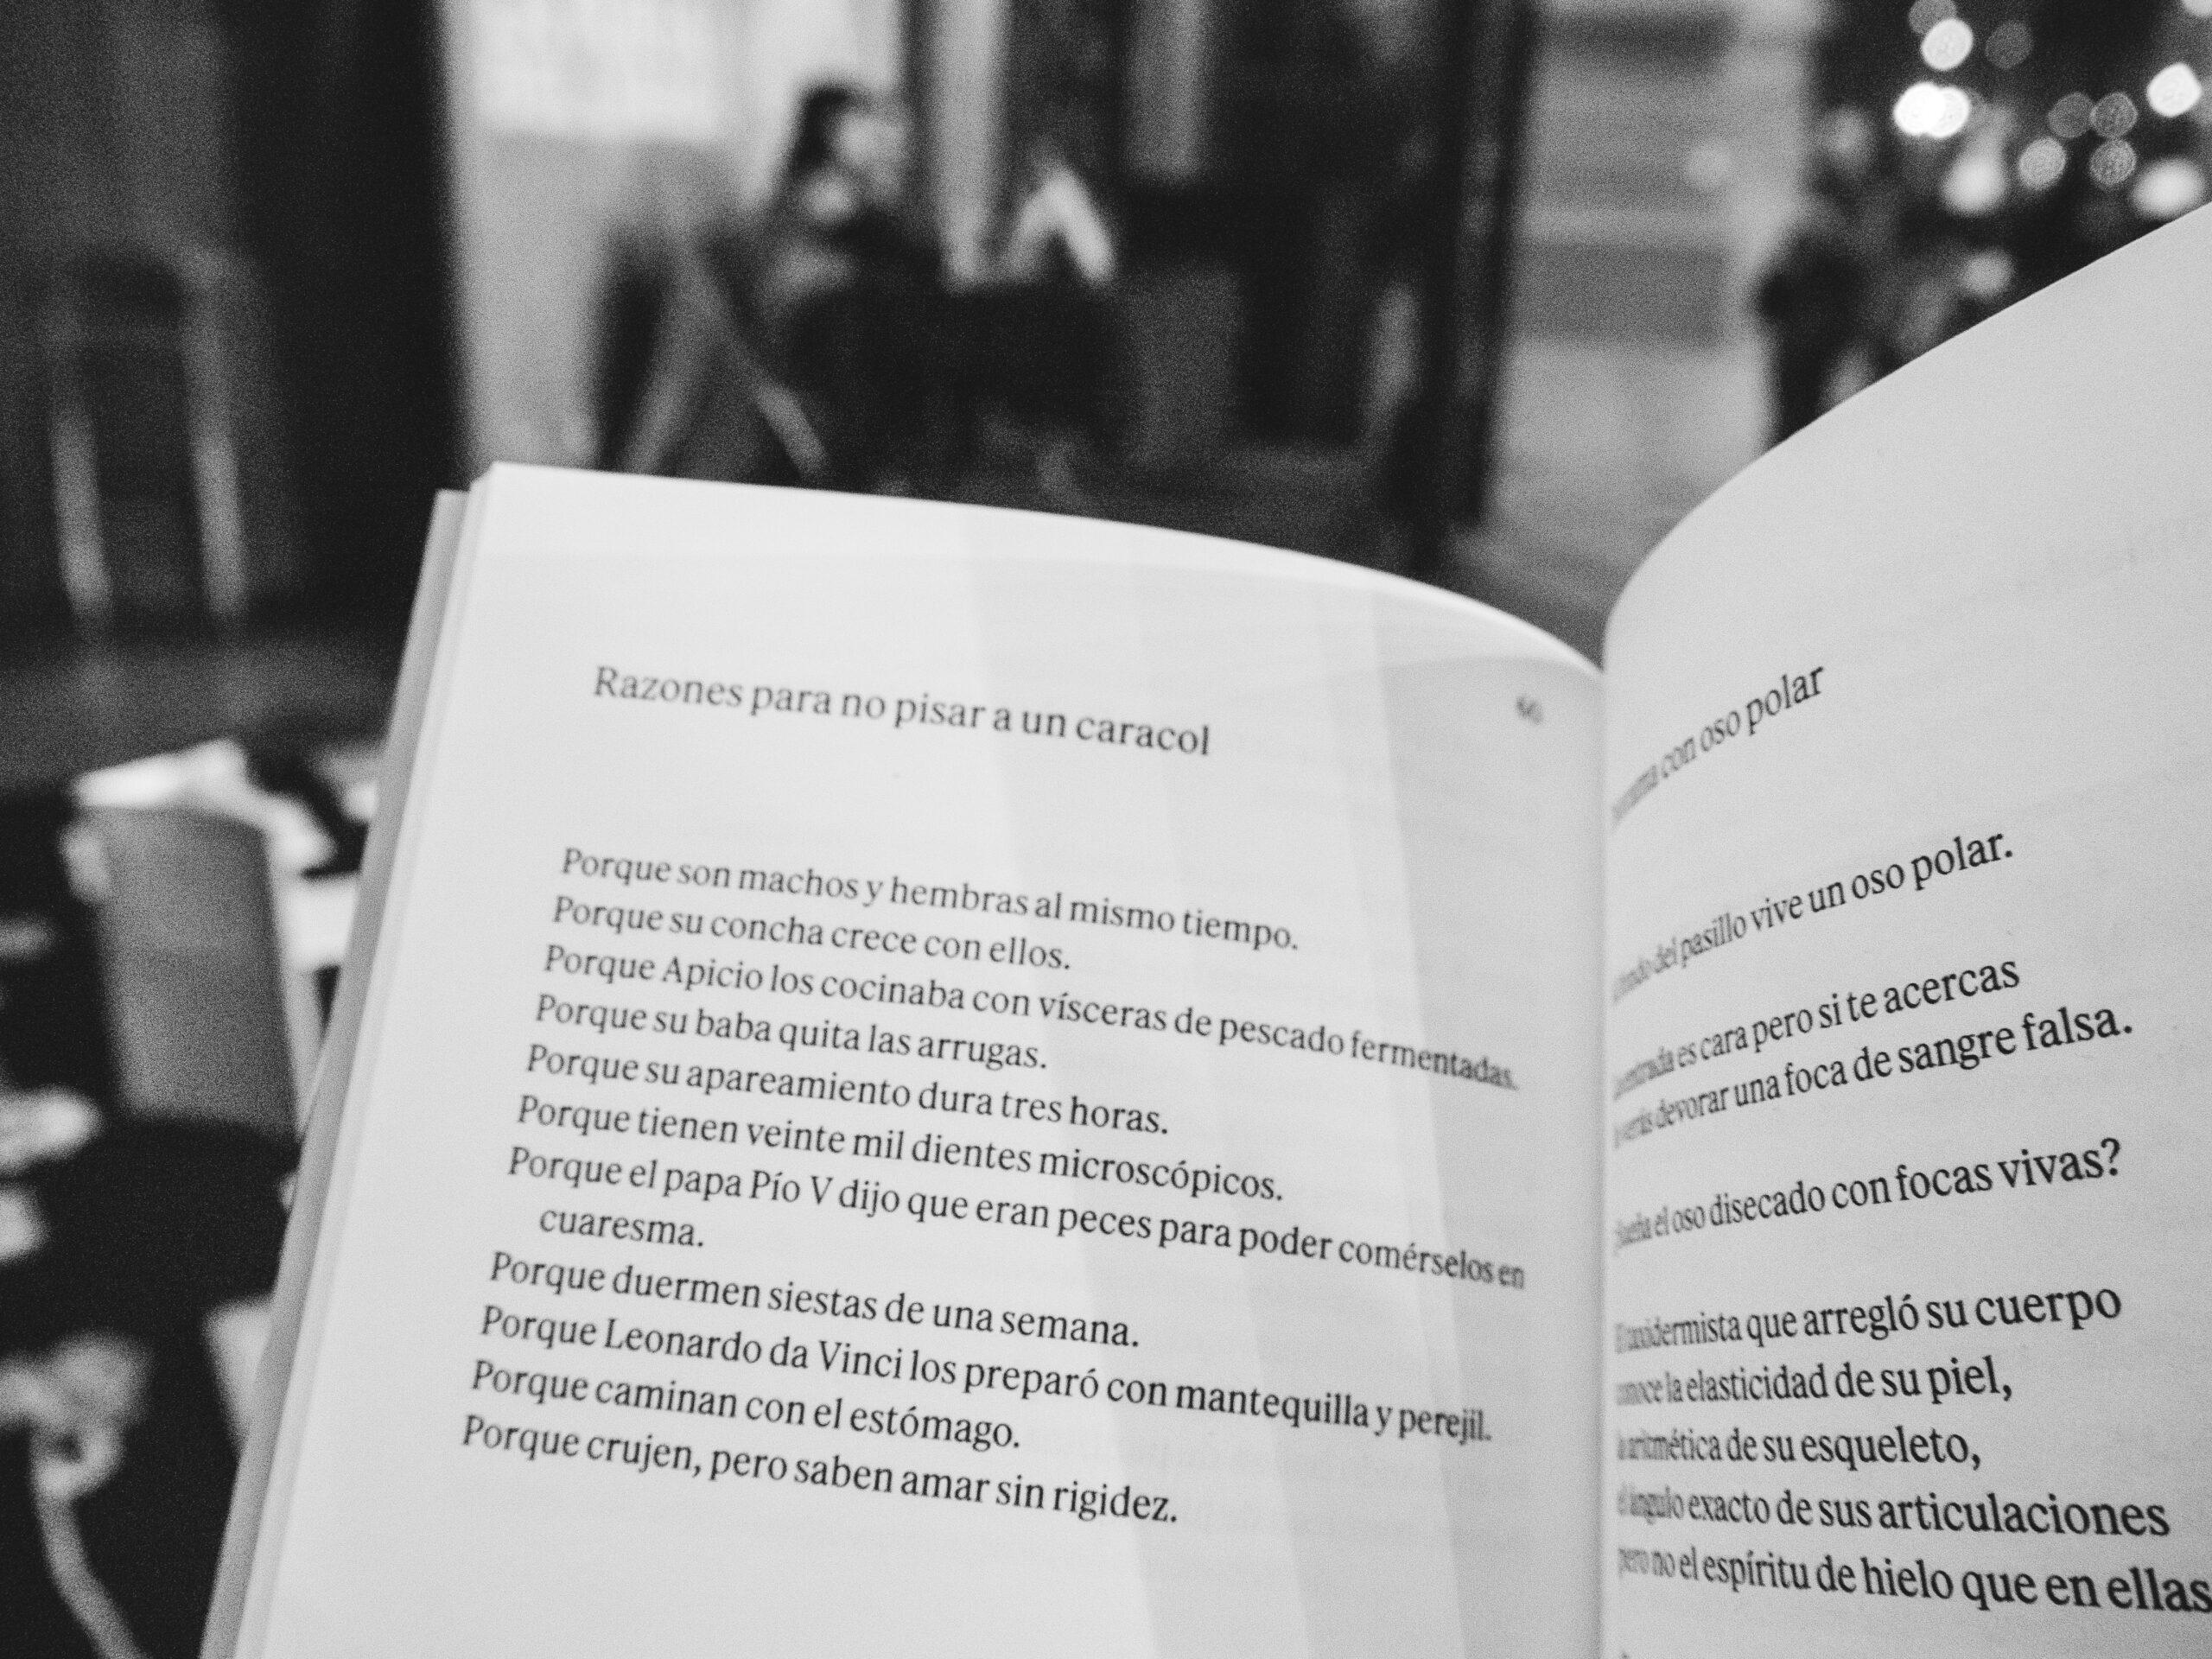 Razones para no pisar a un caracol
Porque son machos y hembras al mismo tiempo.
Porque su concha crece con ellos.
Porque Apicio los cocinaba con vísceras de pescado fermentadas.
Porque su baba quita las arrugas.
Porque su apareamiento dura tres horas.
Porque tienen veinte mil dientes microscópicos.
Porque el papa Pío V dijo que eran peces para poder comérselos en
cuaresma.
Porque duermen siestas de una semana.
Porque Leonardo da Vinci los preparó con mantequilla y perejil.
Porque caminan con el estómago.
Porque crujen, pero saben amar sin rigidez.
con oso polar
del pasillo vive un oso polar.
es cara pero si te acercas
devorar una foca de sangre falsa.
el oso disecado con focas vivas?
que arregló su cuerpo
la elasticidad de su piel,
aritmética de su esqueleto,
ángulo exacto de sus articulaciones
pero no el espíritu de hielo que en ellas